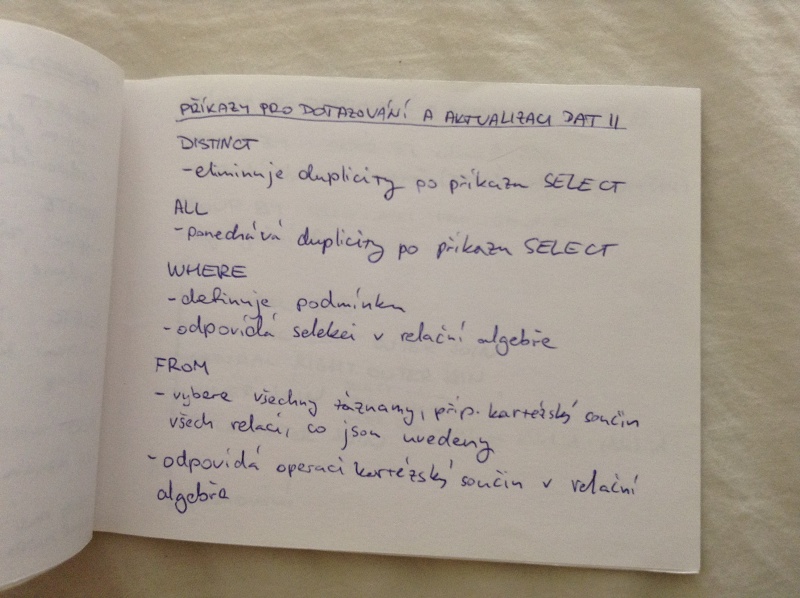 PŘÍKAZY PRO DOTAZOVÁNÍ A AKTUALIZACI DAT II
DISTINCT
-eliminuje duplicity po příkazu SELECT
ALL
-ponechává duplicity po příkazu SELECT
WHERE
-definuje podmínku
-odpovídá selekci v relační algebře
FROM
-vybere všechny záznamy, příp. kartézský součin
všech relací, co jsou uvedeny
-odpovídá operaci kartézský součin v relační
algebře